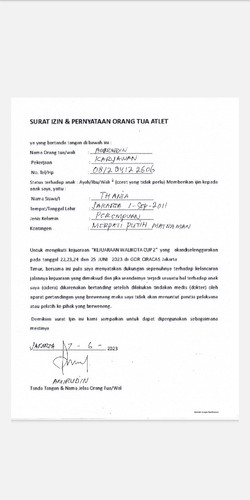 SURAT IZIN & PERNYATAAN ORANG TUA ATLET
ya yang bertanda tangan di bawah ini :
Nama Orang tua/wali : AMIRUDIN
Pekerjaan : KARYAWAN
No. Tel/Hp : 081204172606
Status terhadap anak : Ayah/Ibu/Wali * (coret yang tidak perlu) Memberikan ijin kepada
anak saya, yaitu :
Nama Siswa/i : THANIA
Tempat/Tanggal Lahir : JAKARTA 1-Sep-2011
Jenis Kelamin : PEREMPUAN
Kontingen : MERPATI PUTIH
Untuk mengikuti kejuaraan "KEJUARAAN WALIKOTA CUP 2" yang akan diselenggarakan
pada tanggal 22,23,24 dan 25 JUNI 2023 di GOR CIRACAS Jakarta
Timur, bersama ini pula saya menyatakan dukungan sepenuhnya terhadap kelancaran
jalannya kejuaraan yang dimaksud dan jika seandainya terjadi sesuatu hal terhadap anak
saya (cidera) dikarenakan bertanding setelah dilakukan tindakan medis (dokter) oleh
aparat pertandingan yang berwenang maka saya tidak akan menuntut panitia pelaksana
atau politik ke pihak yang berwenang.
Demikian surat ijin ini kami sampaikan untuk dapat dipergunakan sebagaimana
mestinya
JAKARTA, 7 - 6 - 2023
AMIRUDIN
Tanda Tangan & Nama Jelas Orang Tua/Wali